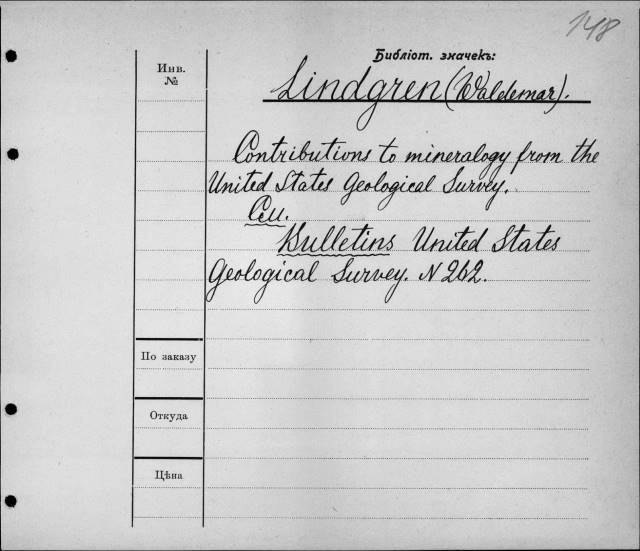 148
Библіот. значекъ:
Инв.
№
Lindgren (Waldemar).
Contributions to mineralogy from the
United States Geological Survey.
См.
Bulletins United States
Geological Survey. N 262.
По заказу
Откуда
Цѣна